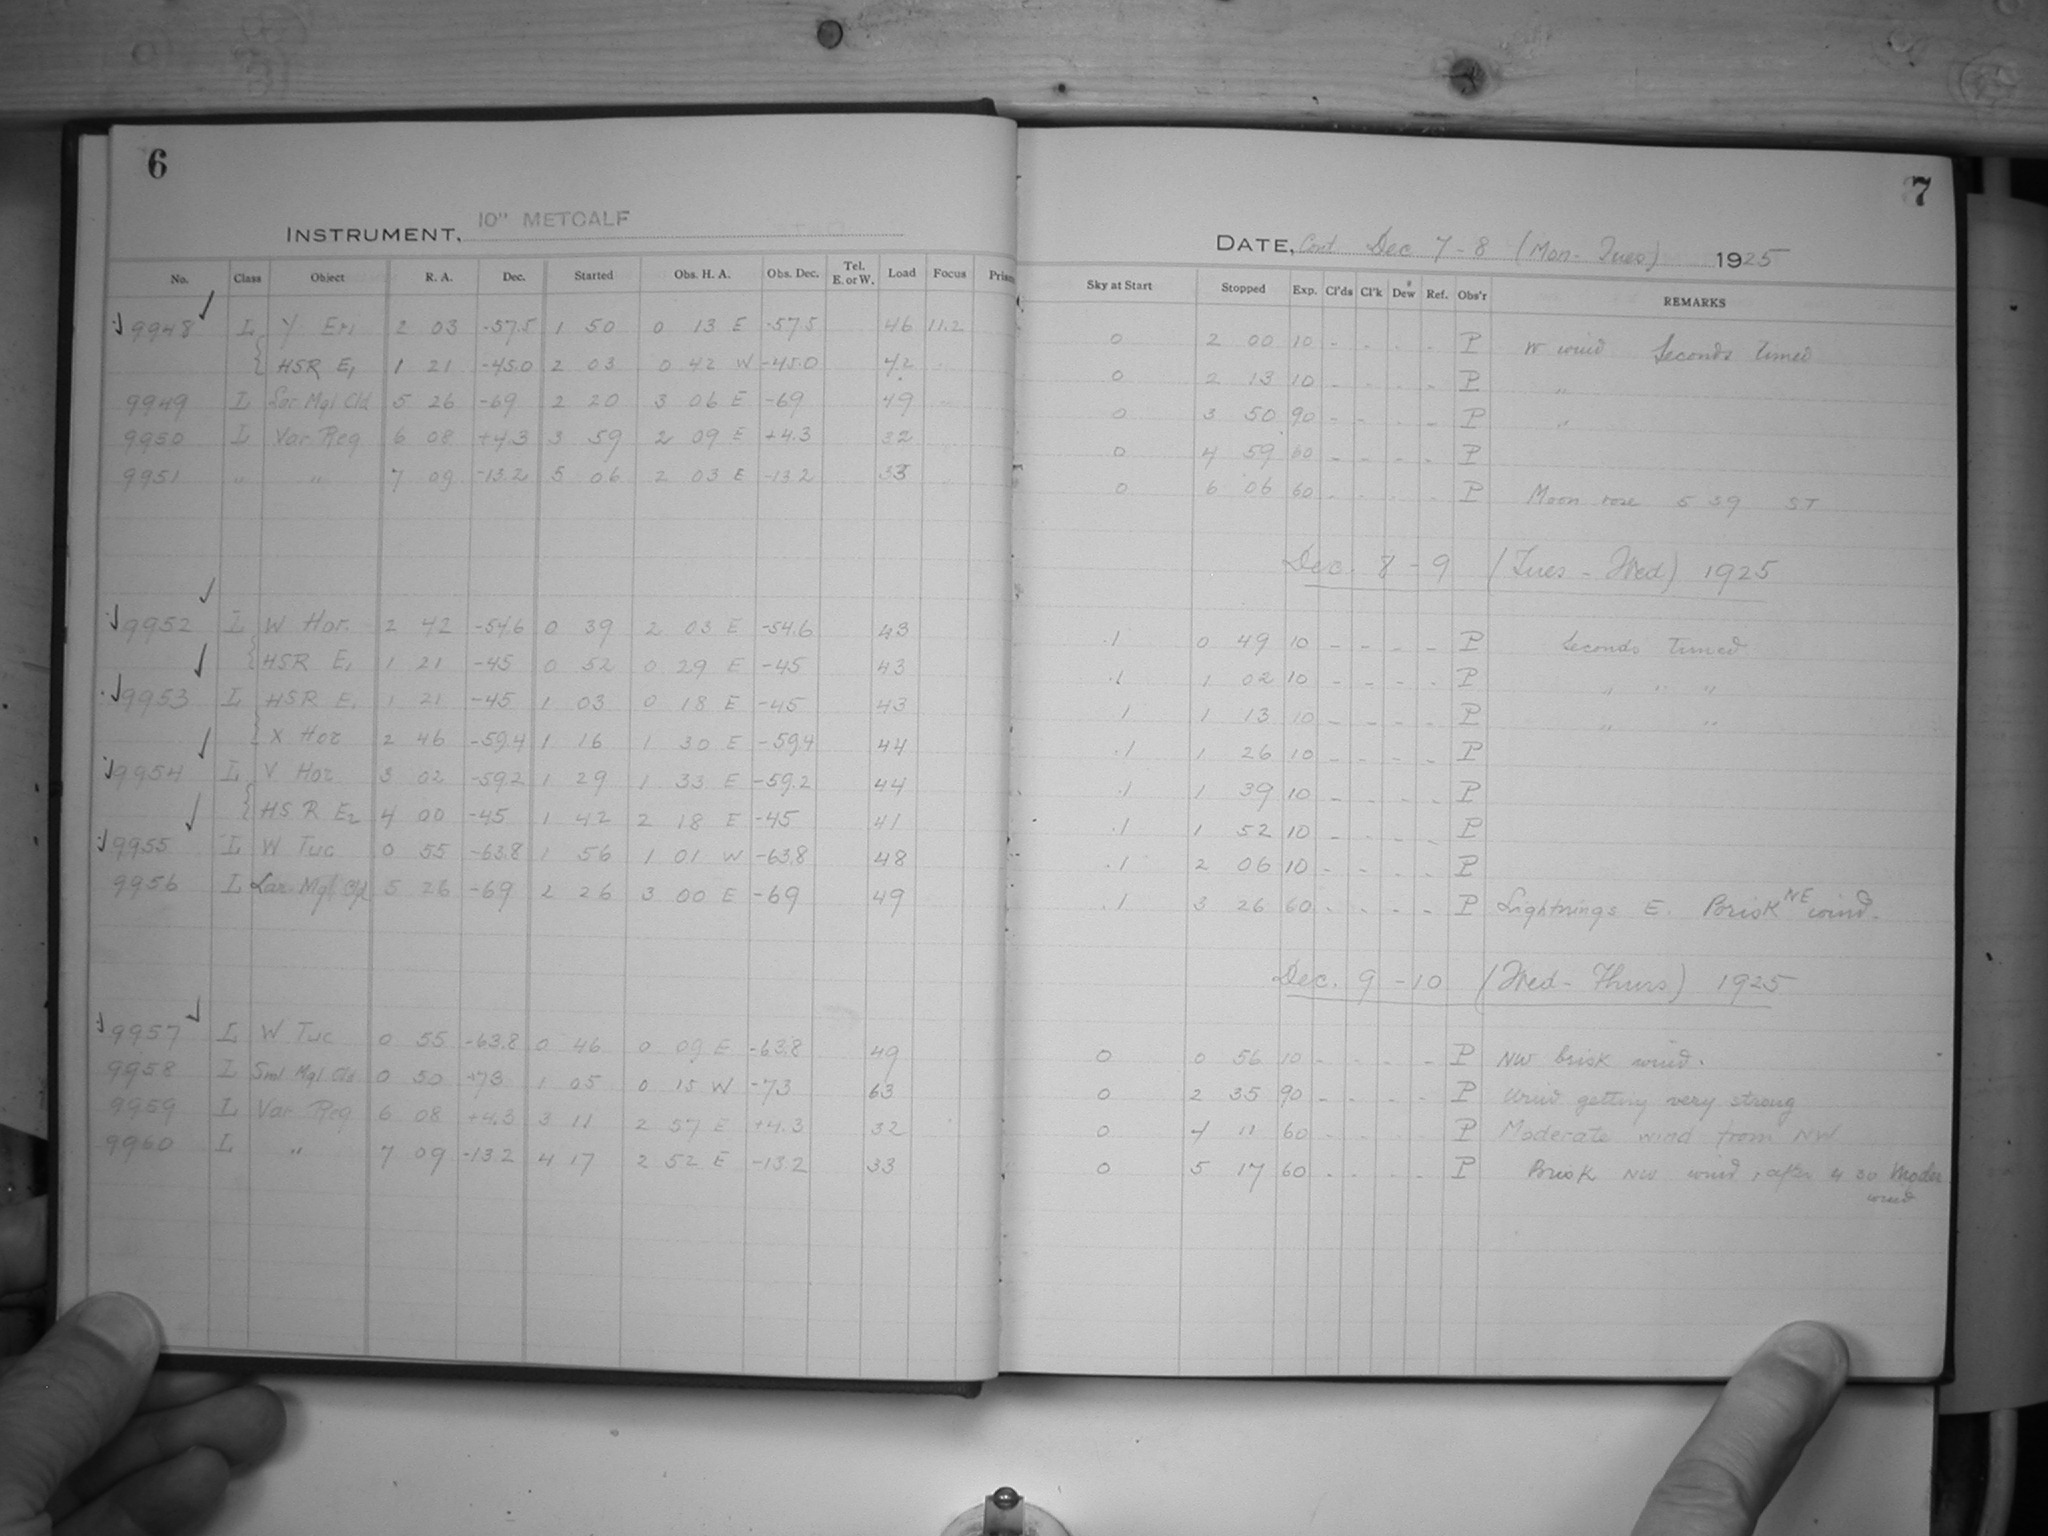 6
INSTRUMENT, 10" METCALF
No. Class Object R. A. Dec. Started Obs. H. A. Obs. Dec. Tel. E. or W. Load Focus Prism
9948 L Y Eri 2 03 -57.5 1 50 0 13 E -57.5 46 11.2
{ HSR E1 1 21 -45.0 2 03 0 42 W -45.0 42
9949 L Lar Mgl Cld 5 26 -69 2 20 3 06 E -69 49
9950 L Var Reg 6 08 +4.3 3 59 2 09 E +4.3 32
9951 " " 7 09 -13.2 5 06 2 03 E -13.2 33
9952 L W Hor. 2 42 -54.6 0 39 2 03 E -54.6 43
{ HSR E1 1 21 -45 0 52 0 29 E -45 43
9953 L HSR E1 1 21 -45 1 03 0 18 E -45 43
{ X Hor 2 46 -59.4 1 16 1 30 E -59.4 44
9954 L V Hor 3 02 -59.2 1 29 1 33 E -59.2 44
{ HSR E2 4 00 -45 1 42 2 18 E -45 41
9955 L W Tuc 0 55 -63.8 1 56 1 01 W -63.8 48
9956 L Lar Mgl Cld 5 26 -69 2 26 3 00 E -69 49
9957 L W Tuc 0 55 -63.8 0 46 0 09 E -63.8 49
9958 L Sml Mgl Cld 0 50 -73 1 05 0 15 W -73 63
9959 L Var Reg 6 08 +4.3 3 11 2 57 E +4.3 32
9960 L " 7 09 -13.2 4 17 2 52 E -13.2 33
7
DATE, Cont Dec 7-8 (Mon-Tues) 1925
Sky at Start Stopped Exp. Cl'ds Cl'k Dew Ref. Obs'r REMARKS
0 2 00 10 - - - - P W wind Seconds timed
0 2 13 10 - - - - P "
0 3 50 90 - - - - P "
0 4 59 60 - - - - P
0 6 06 60 - - - - P Moon rose 5 39 ST
Dec. 8-9 (Tues-Wed) 1925
.1 0 49 10 - - - - P Seconds timed
.1 1 02 10 - - - - P " " "
.1 1 13 10 - - - - P " "
.1 1 26 10 - - - - P
.1 1 39 10 - - - - P
.1 1 52 10 - - - - P
.1 2 06 10 - - - - P
.1 3 26 60 - - - - P Lightnings E. Brisk NE wind.
Dec. 9-10 (Wed-Thurs) 1925
0 0 56 10 - - - - P NW brisk wind.
0 2 35 90 - - - - P Wind getting very strong
0 4 11 60 - - - - P Moderate wind from NW
0 5 17 60 - - - - P Brisk NW wind, after 4 30 Moder
wind